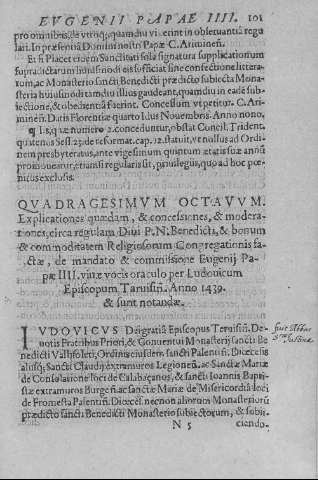 EVGENII PAPAE IIII. 101
pro omnibus, de vtroq; quamdiu vixerint in obseruantia regu
lari. In præsentia Domini nostri Papæ C. Ariminen.
Et si Placet eidem Sanctitati sola signatura supplicationum
supradictarum huiusmodi eis sufficiat sine confectione littera-
rum, ac Monasterio sancti Benedicti prædicto subiecta Monas-
teria huiusmodi tamdiu illius gaudeant, quamdiu in eadē sub-
iectione, & obedientia fuerint. Concessum vt petitur. C. Ari-
minen. Datis Florentiæ quarto Idus Nouembris. Anno nono.
¶ Iis, quæ numero 2. conceduntur, obstat Concil. Trident.
quatenus Sess. 23. de reformat. cap. 12. statuit, ve nullus ad Ordi-
nem presbyteratus, ante vigesimum quintum ætatis suæ annū
promoueatur, etiamsi regularis sit, priuilegiis, quo ad hoc pœ-
nitus exclusis.
QVADRAGESIMVM OCTAVVM.
Explicationes quædam, & concessiones, & modera-
tiones, circa regulam Diui P. N. Benedicti, & bonum
& commoditatem Religiosorum Congregationis fa-
ctæ, de mandato & commissione Eugenij Pa-
pæ IIII, viuæ vocis oraculo per Ludouicum
Episcopum Taruisin. Anno 1439.
& sunt notandæ.
LVDOVICVS Dei gratia Episcopus Teruisin. De-
uotis Fratribus Priori, & Conuentui Monasterij sancti Be
nedicti Vallisoleti, Ordinis eiusdem sancti Palentin. Diœcesis
aliisq; Sancti Claudij extra muros Legionen. ac Sanctæ Mariæ
de Consolatione loci de Calabaçanos, & sancti Ioannis Baptis-
tæ extra muros Burgen. ac sanctæ Mariæ de Misericordia loci
de Fromesta Palentin. Diœces. necnon aliorum Monasteriorū
prædicto sancti Benedicti Monasterio subiectorum, & subii-
N 5 ciendo-
fuit Abbas
Justinæ